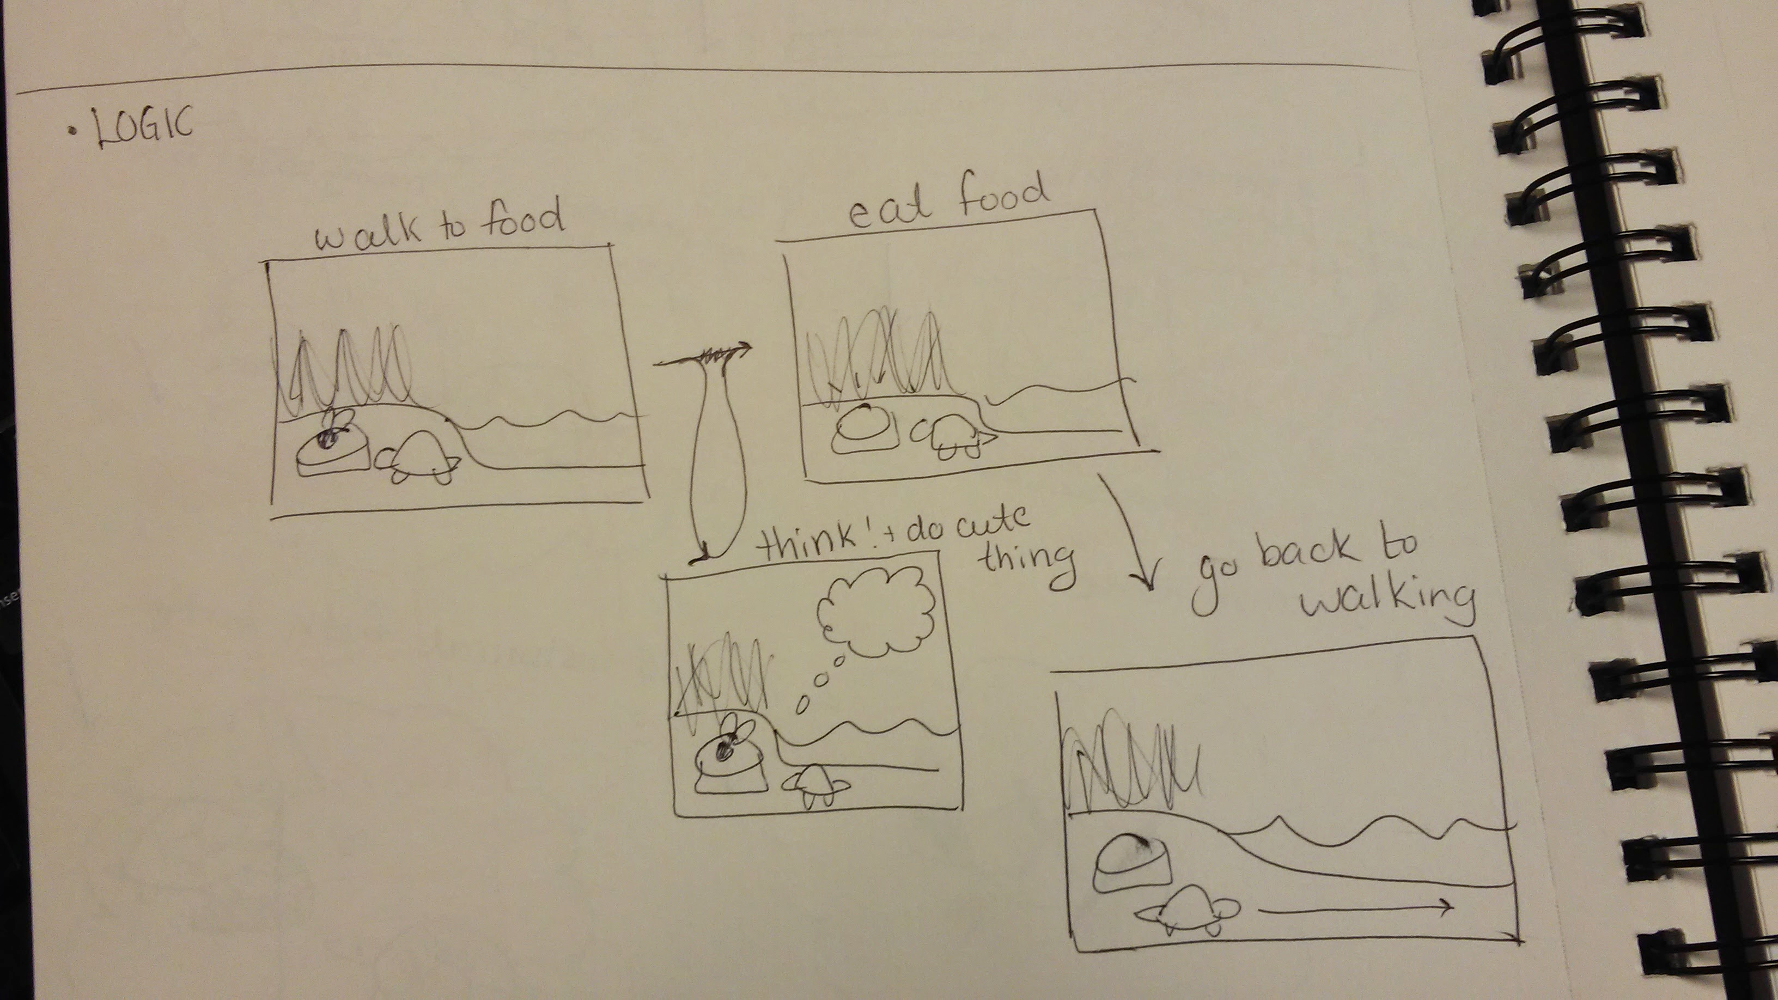 • LOGIC
walk to food
eat food
think! + do cute
thing
go back to
walking